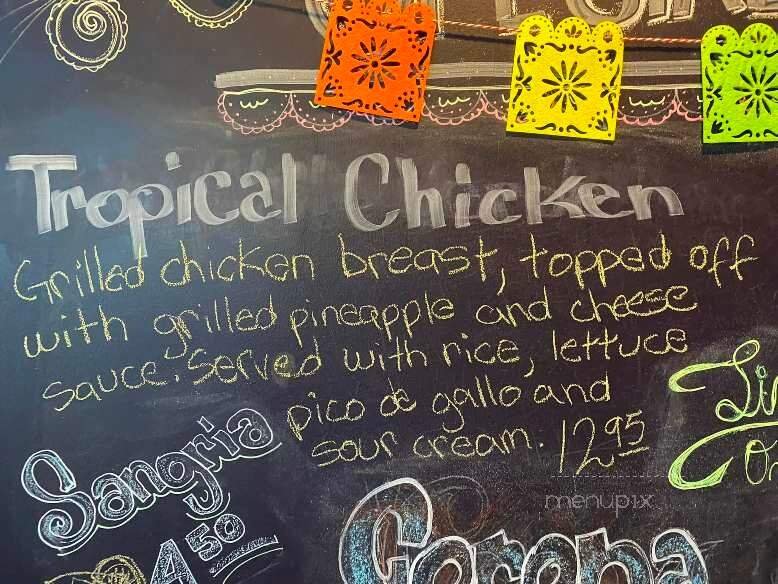 Tropical Chicken
Grilled chicken breast, topped off
with grilled pineapple and cheese
sauce. Served with rice, lettuce
pico de gallo and
sour cream. 12.95
Sangria
4.50
menupix
Corona